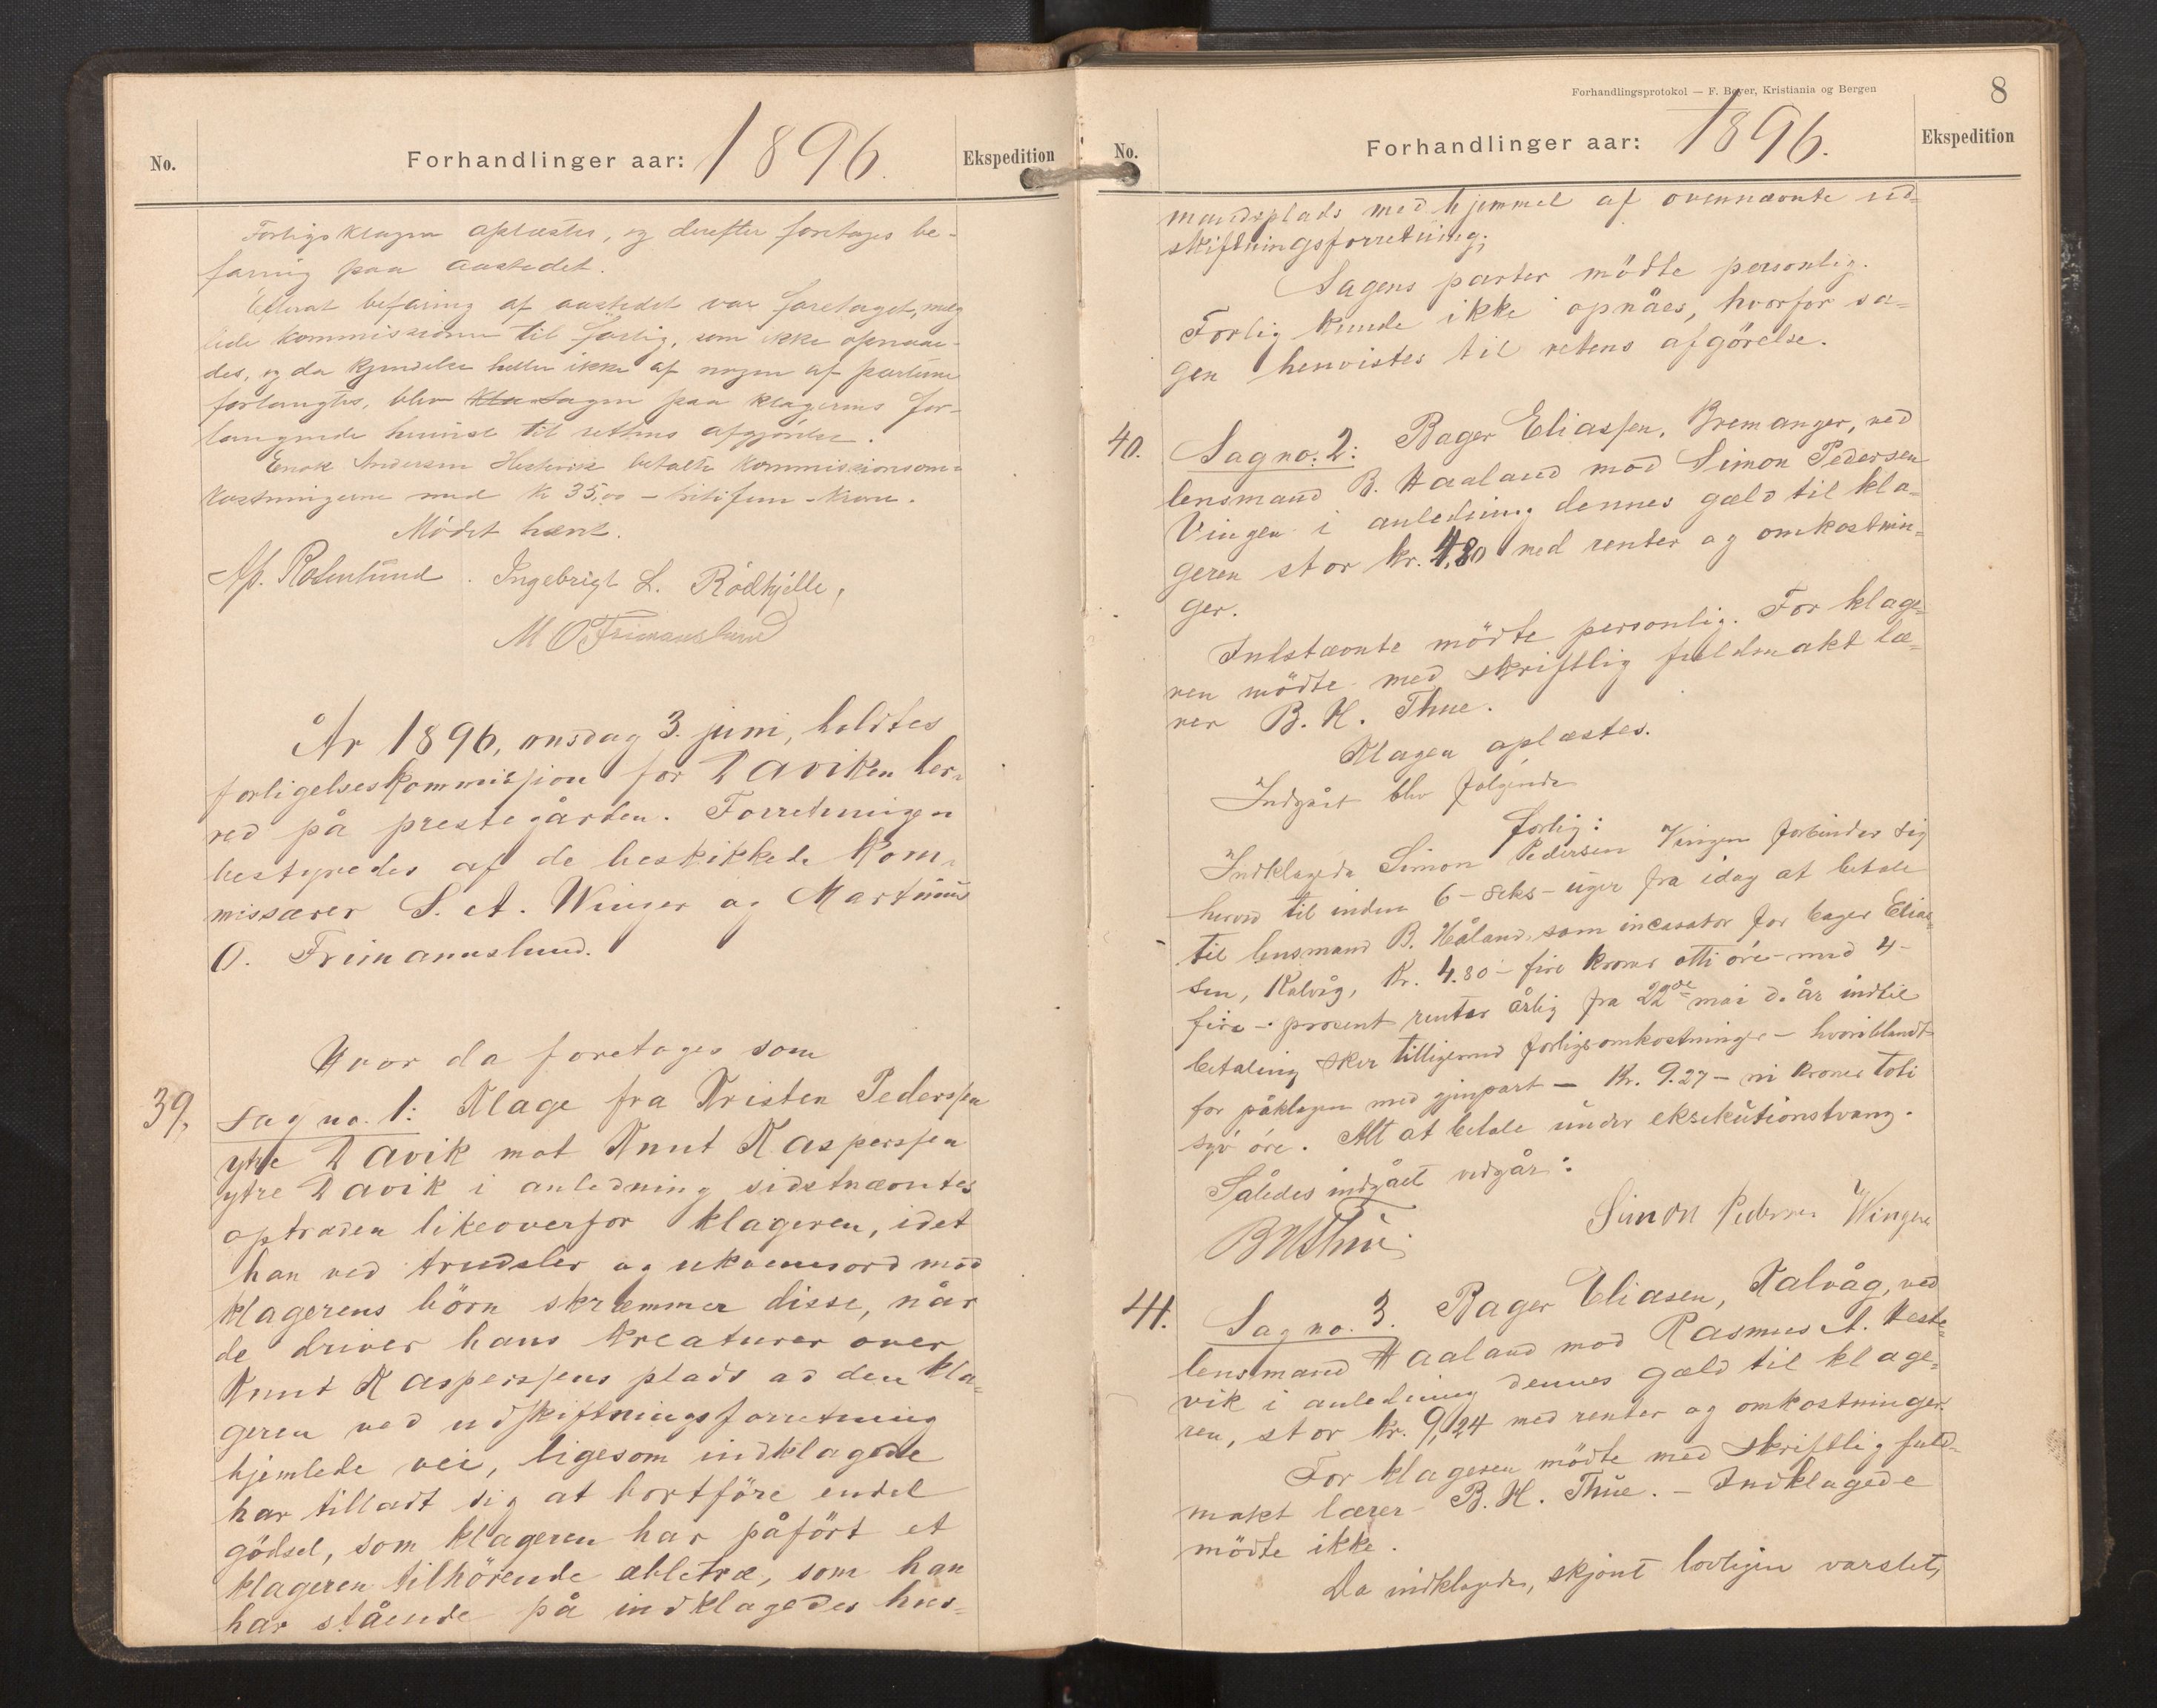 No.
Forhandlinger aar: 1896.
Ekspedition
Forligsklagen oplæstes, og derefter foretages be-
faring paa aastedet.
Efterat befaring af aastedet var foretaget, mæg
lede kommissionen til forlig, som ikke opnaae-
des, og da kjendelse heller ikke af nogen af parterne
forlangtes, blev sagen paa klagerens for-
langende henvist til rettens afgjørelse.
Enok Andersen Hestevik betalte kommissionsom-
kostningerne med kr 35,00 – kroner.
Mödet hævt.
Rosenlund. Ingebrigt L. Rödhjelle,
M O Frimannslund
År 1896, onsdag 3. juni, holdtes
forligelseskommissjion for Daviken her-
red på prestegården. Forretningen
bestyredes af de beskikkede kom-
missærer S. A. Winger og Martinus
O. Frimannslund.
Hvor da foretoges som
39. sag no. 1: Klage fra Kristen Pederssen
ytre Davik mot Knut Kasperssen
ytre Davik i anledning sidstnævntes
optræden likeoverfor klageren, idet
han ved trudsler og ukvemsord mod
klagerens börn skræmmer disse, når
de driver hans kreaturer over
Knut Kasperssens plads ad den kla-
geren ved udskiftningsforretning
hjemlede vei, ligesom indklagede
har tilladt sig at bortföre endel
gödsel, som klageren har påfört et
klageren tilhörende æbletræ, som han
har stående på indklagedes hus-
Forhandlingsprotokol — F. Beyer, Kristiania og Bergen
8
No.
Forhandlinger aar: 1896.
Ekspedition
mandsplads med hjemmel af ovennævnte ud-
skiftningsforretning;
Sagens parter mödte personlig.
Forlig kunde ikke opnåes, hvorfor sa-
gen henvistes til retens afgörelse.
40. Sag no. 2: Bager Eliassen, Bremanger, ved
lensmand B. Haaland mod Simon Pedersen
Vingen i anledning dennes gæld til kla-
geren stor kr. 4,80 med renter og omkostnin-
ger.
Indstævnte mödte personlig. For klage-
ren mödte med skriftlig fuldmakt læ-
rer B. H. Thue.
Klagen oplæstes.
Indgået blev fölgende
forlig:
Indklagede Simon Pedersen Vingen forbinder sig
herved til inden 6 – seks – uger fra idag at betale
til lensmand B. Håland, som incasator for bager Elias-
sen, Kalvåg, kr. 4.80 – fire kroner otti öre – med 4 –
fire – prosent renter årlig fra 22de mai d. år indtil
betaling sker tilligemed forligsomkostninger – hvoriblandt
for påklagen med gjenpart – kr. 9.27 – ni kroner toti
syv öre. Alt at betale under eksekutionstvang.
Således indgået vedgår:
Simon Pedersen Wingen
B H Thue.
41. Sag no. 3. Bager Eliasen, Kalvåg, ved
lensmand Haaland mod Rasmus A. Heste-
vik i anledning dennes gæld til klage-
ren, stor kr. 9,24 med renter og omkostninger.
For klageren mödte med skriftlig fuld-
makt lærer B. H. Thue. – Indklagede
mödte ikke.
Da indklagede, skjönt lovligen varslet,